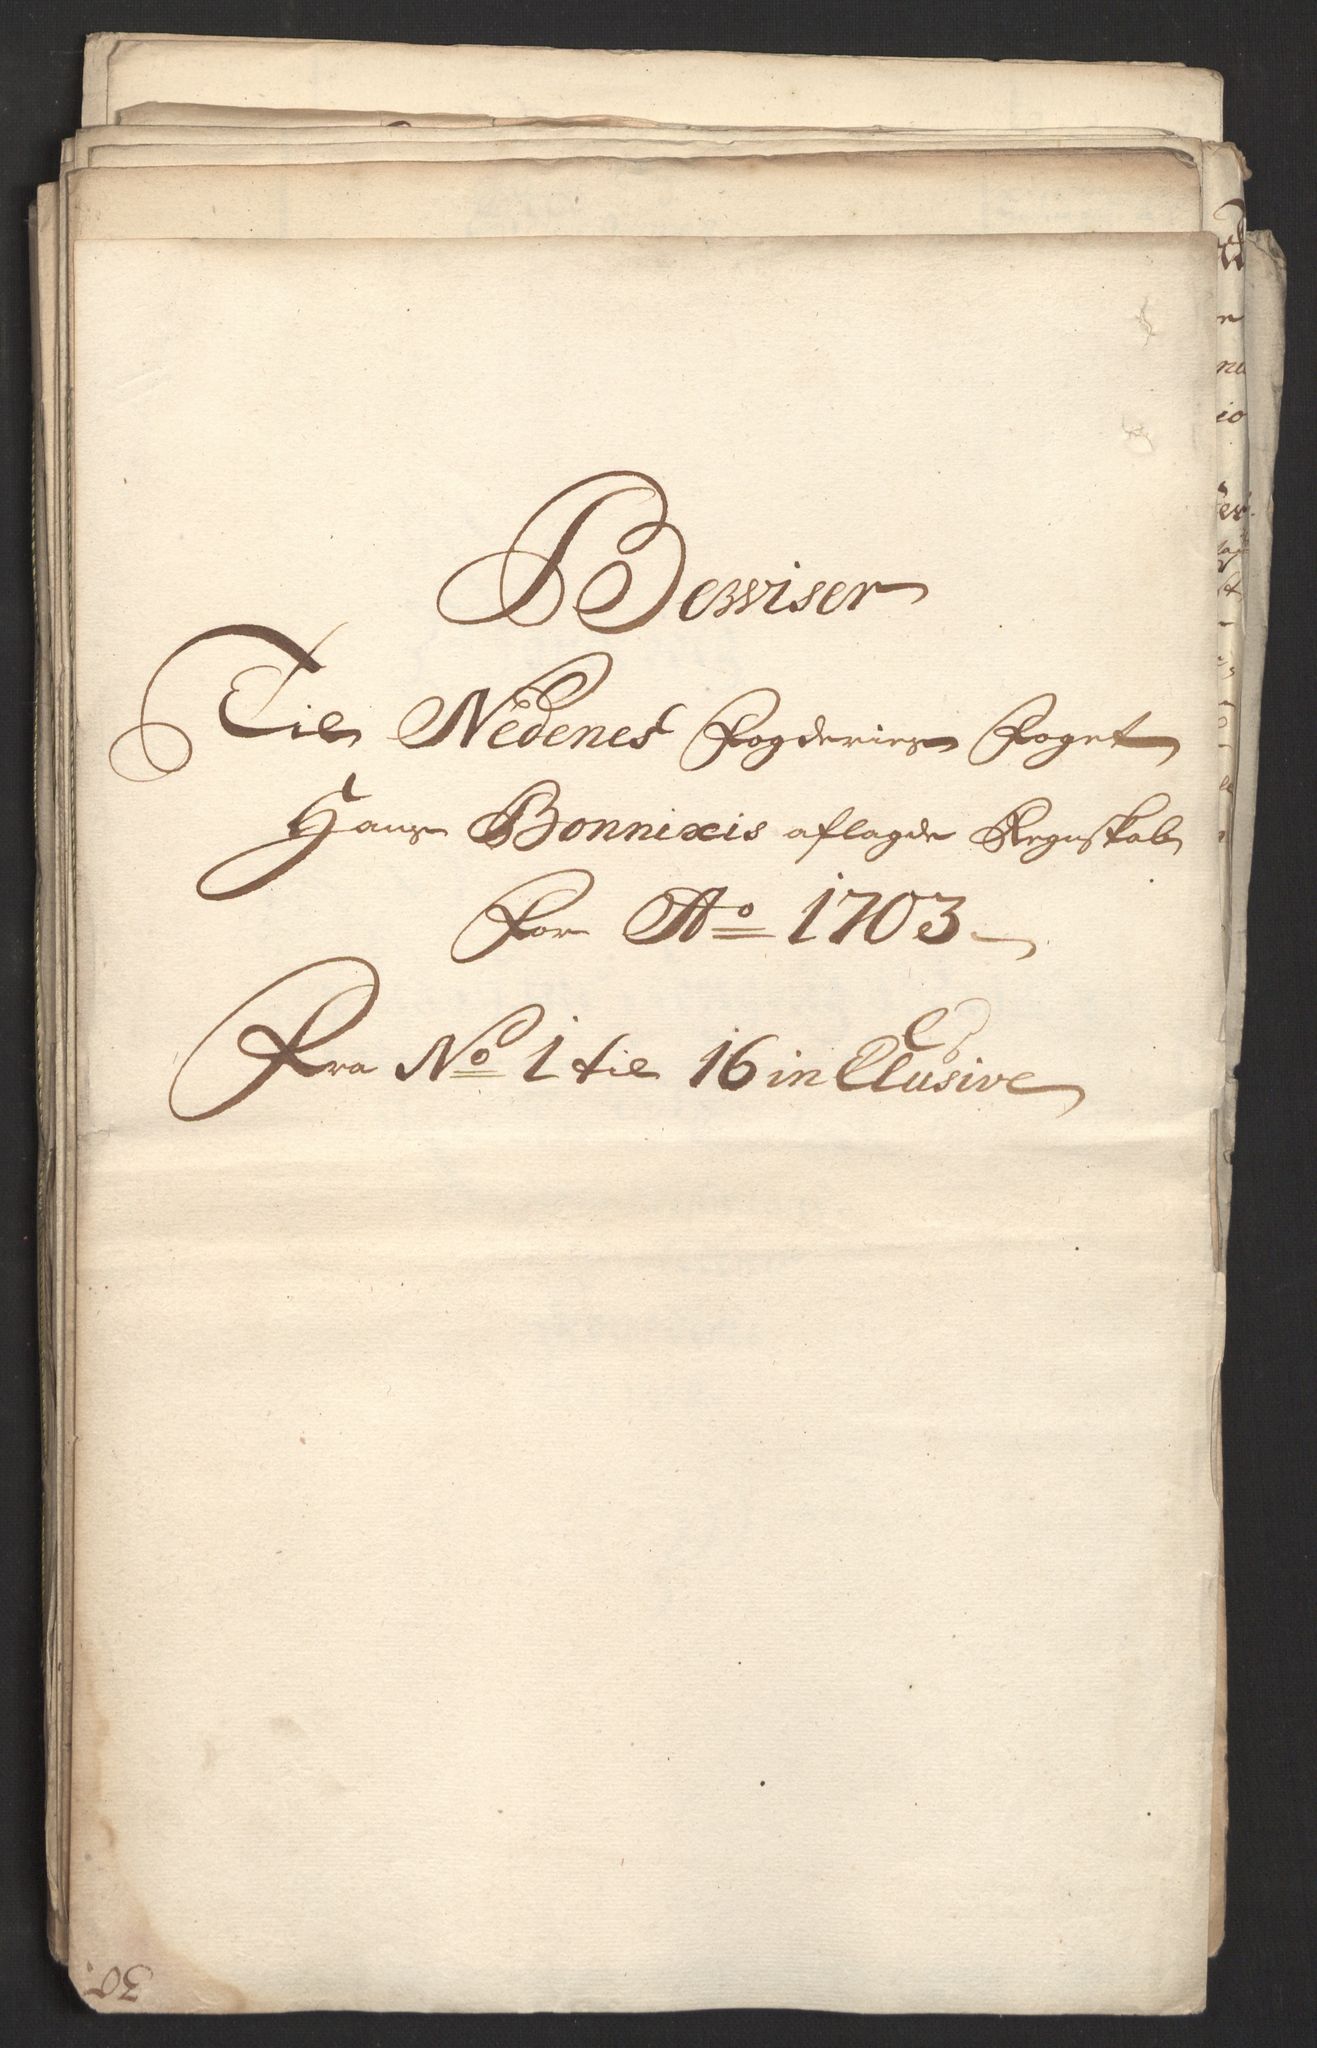 Bewiser
Til Nedenes Fogderies Foget
Hans Bonnixis aflagde Regnskab
For Ao 1703
Fra No 1 til 16 inClusive